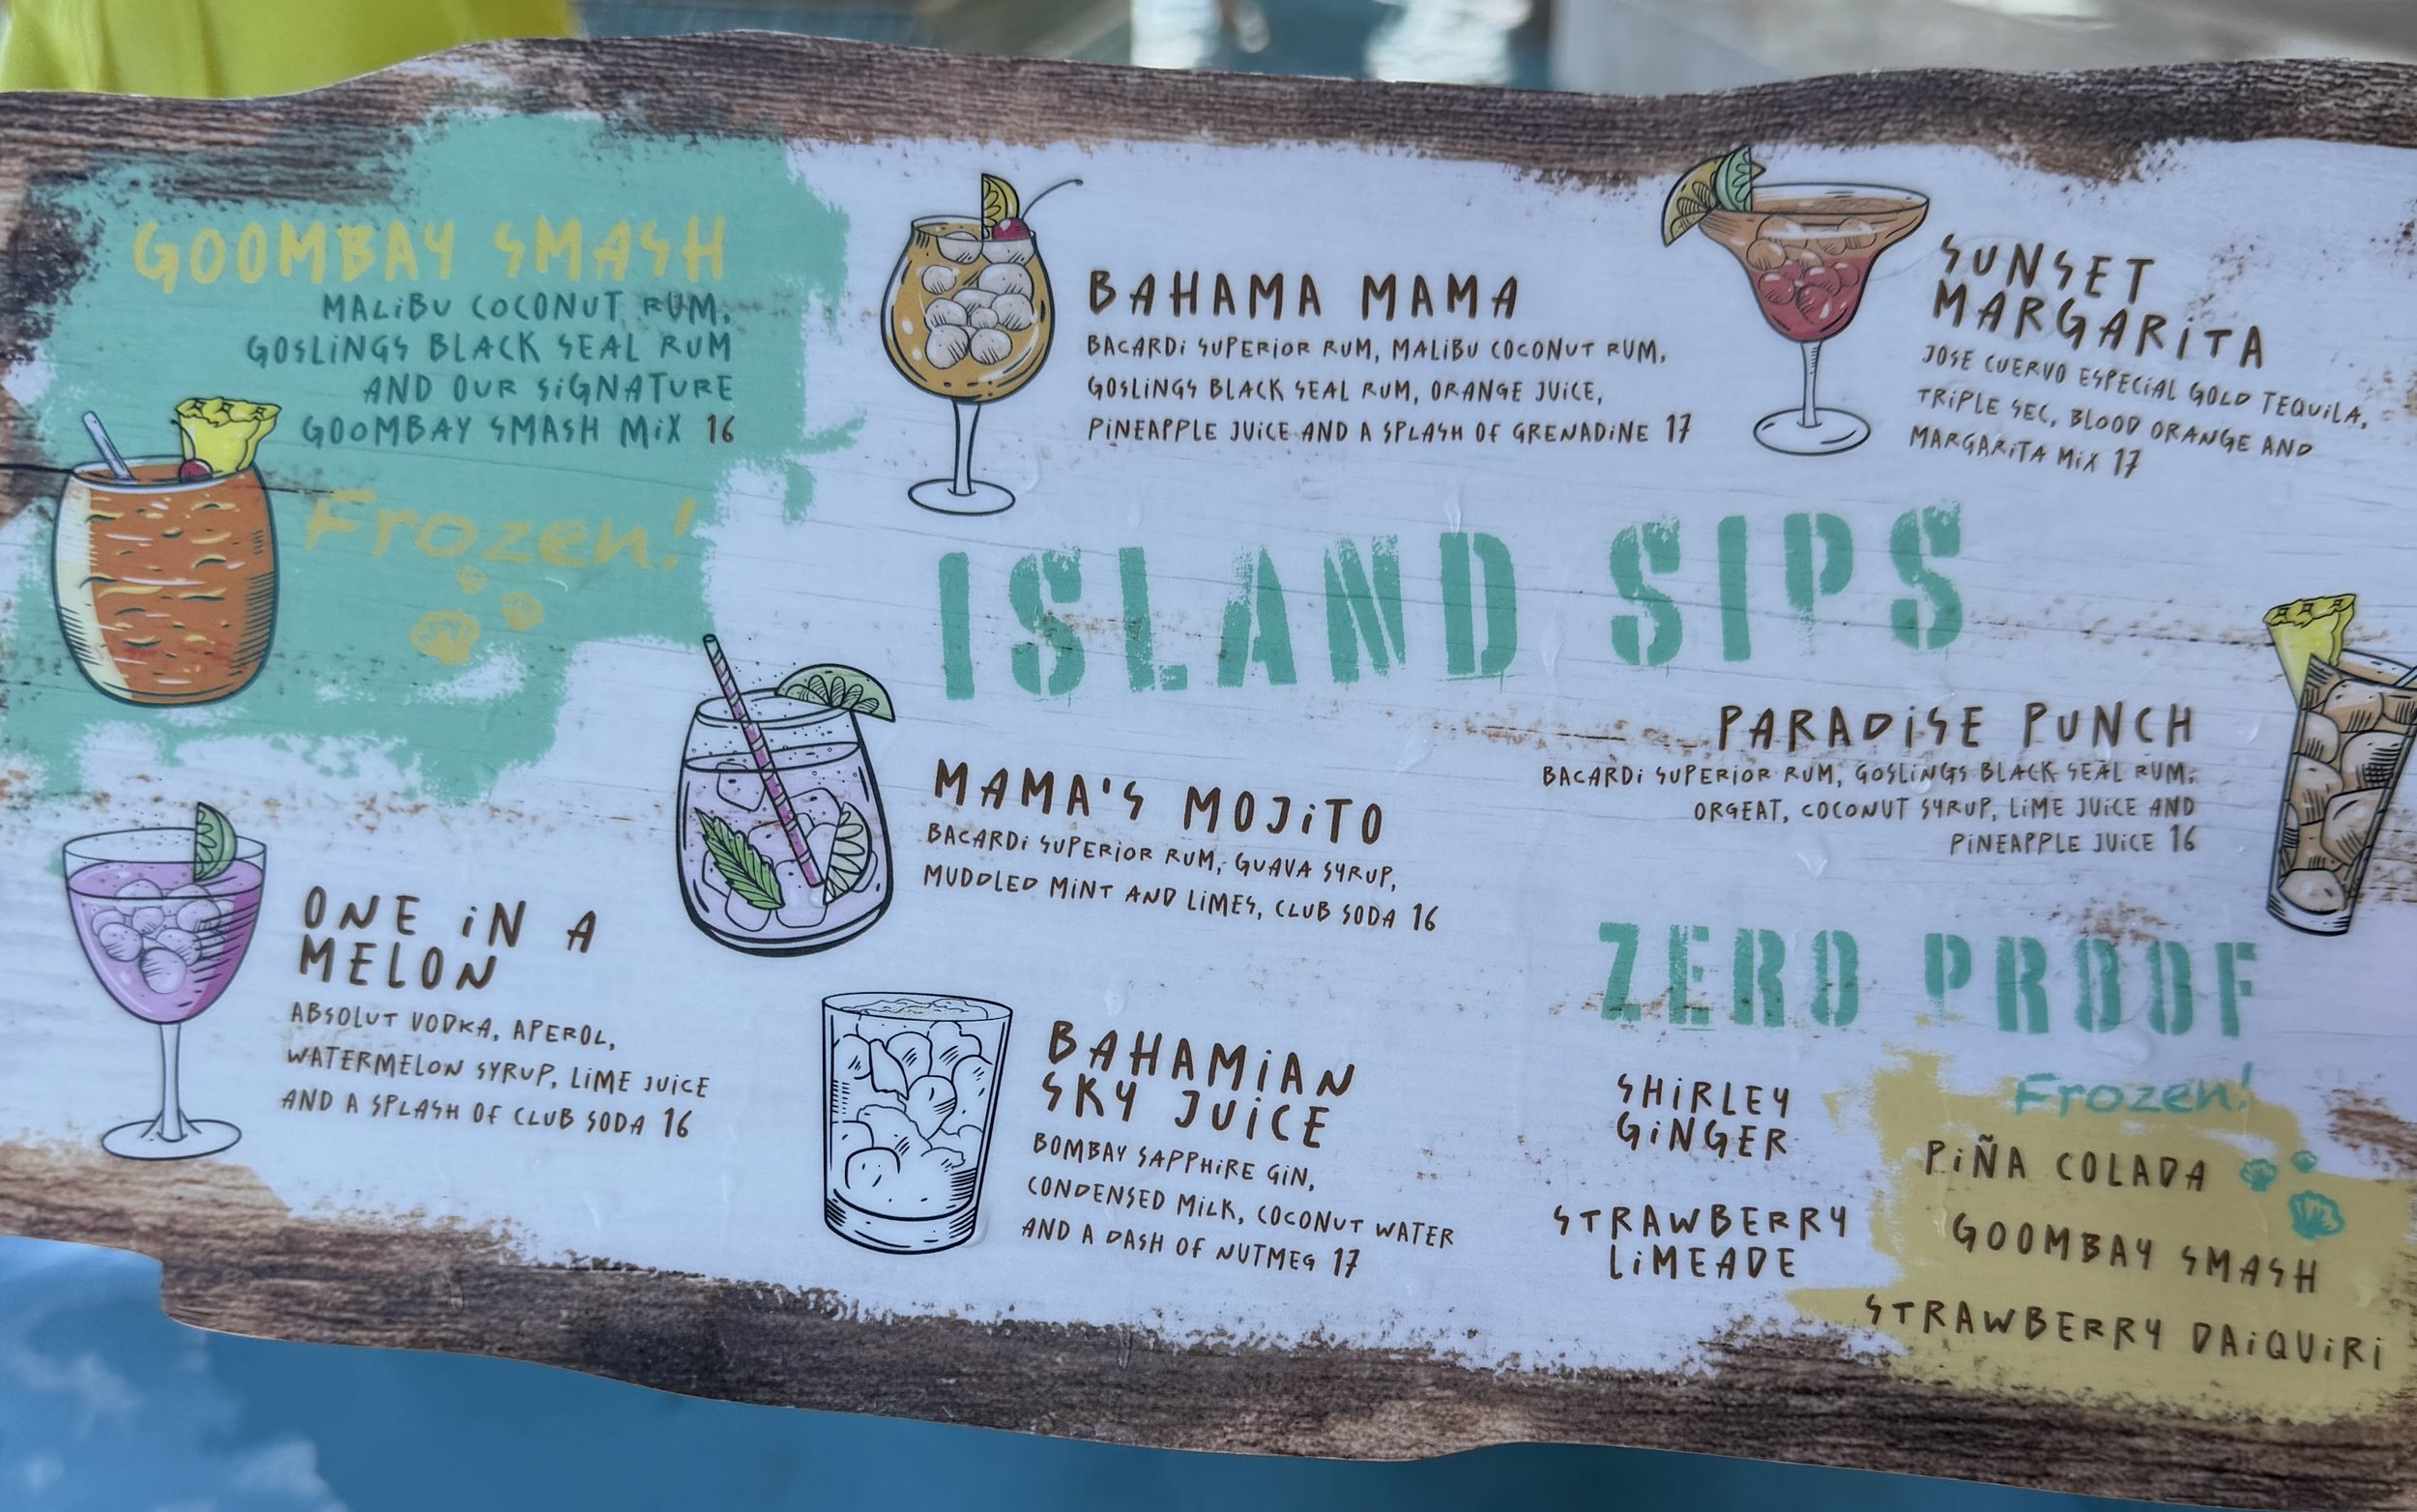 GOOMBAY SMASH
MALiBU COCONUT RUM,
GOSLiNGS BLACK SEAL RUM
AND OUR SiGNATURE
GOOMBAY SMASH MiX 16
Frozen!
BAHAMA MAMA
BACARDi SUPERIOR RUM, MALiBU COCONUT RUM,
GOSLiNGS BLACK SEAL RUM, ORANGE JUiCE,
PiNEAPPLE JUiCE AND A SPLASH OF GRENADiNE 17
SUNSET
MARGARiTA
JOSE CUERVO ESPECiAL GOLD TEQUiLA,
TRiPLE SEC, BLOOD ORANGE AND
MARGARiTA MiX 17
ISLAND SIPS
MAMA'S MOJiTO
BACARDi SUPERiOR RUM, GUAVA SYRUP,
MUDDLED MiNT AND LiMES, CLUB SODA 16
PARADiSE PUNCH
BACARDi SUPERiOR RUM, GOSLiNGS BLACK SEAL RUM,
ORGEAT, COCONUT SYRUP, LiME JUiCE AND
PiNEAPPLE JUiCE 16
ONE iN A
MELON
ABSOLUT VODKA, APEROL,
WATERMELON SYRUP, LiME JUiCE
AND A SPLASH OF CLUB SODA 16
BAHAMiAN
SKY JUiCE
BOMBAY SAPPHiRE GiN,
CONDENSED MiLK, COCONUT WATER
AND A DASH OF NUTMEG 17
ZERO PROOF
SHiRLEY
GiNGER
STRAWBERRY
LiMEADE
Frozen!
PiÑA COLADA
GOOMBAY SMASH
STRAWBERRY DAiQUiRi